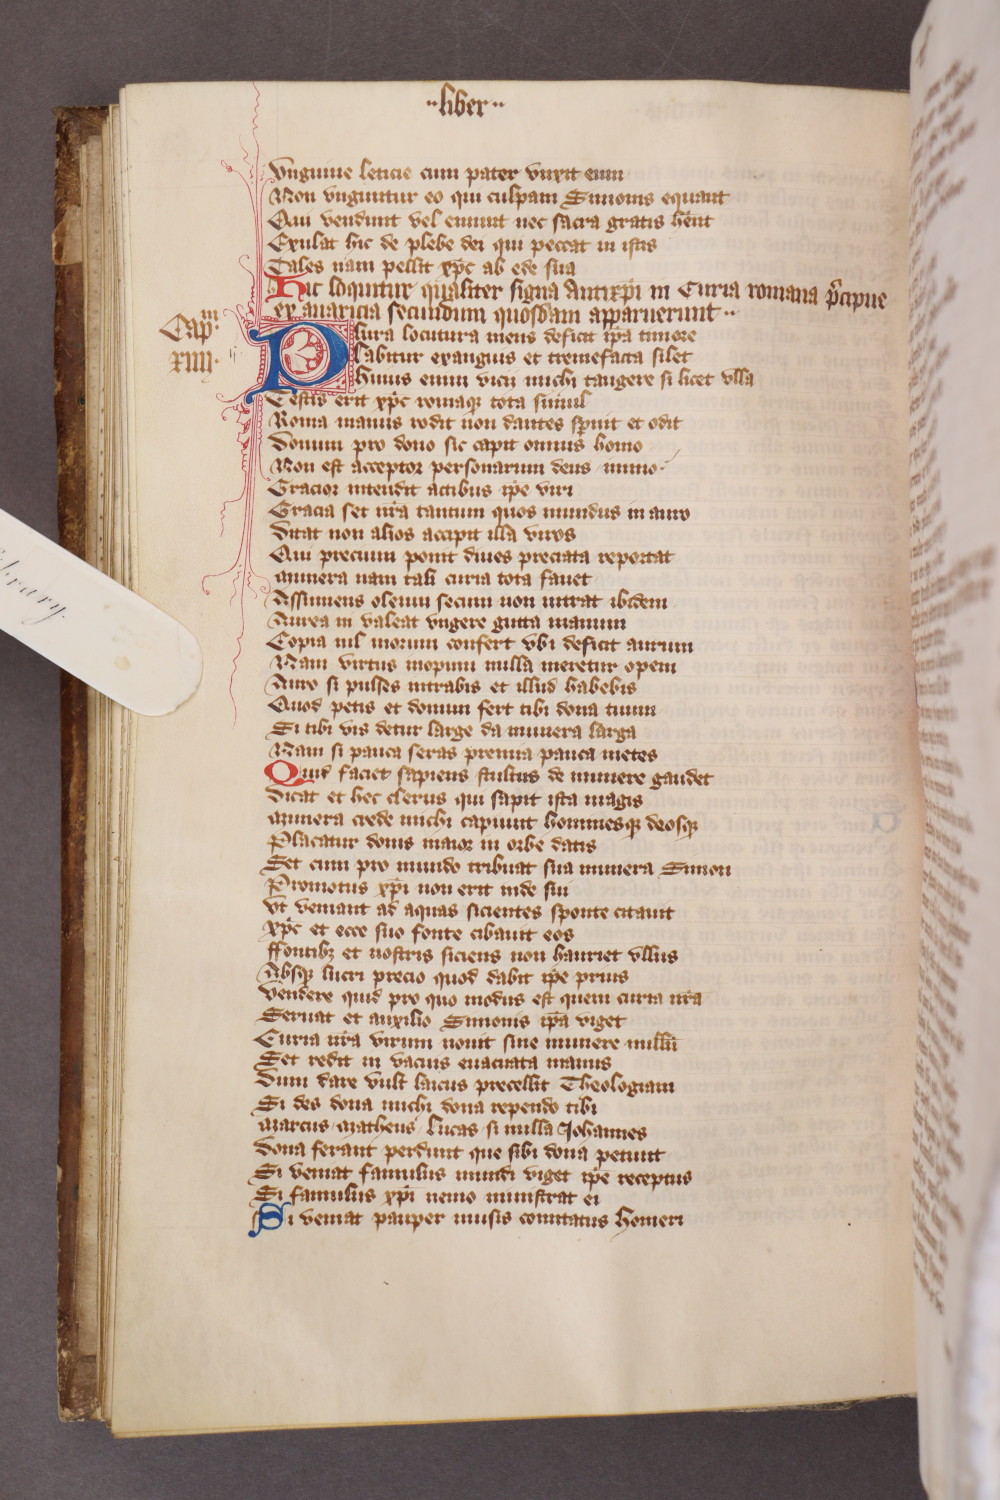 ··liber··
Vnguine leticie cum pater vnxit eum
Non vnguntur eo qui culpam Simonis equant
Qui vendunt vel emunt nec sacra gratis hent
Exulat hic de plebe dei qui peccat in istis
Tales nam pellit xp̄c ab ede sua
Hic loquitur qualiter signa Antixp̄i in Curia romana p̄cipue
ex auaricia secundum quosdam apparuerunt··
Capm
xiiij.
Plura locutura mens deficit ip̄a timore
Labitur exanguis et tremefacta silet
Huius enim vicii michi tangere si licet vlla
Testis erit xp̄c romaq; tota simul
Roma manus rodit non dantes spnuit et odit
Donum pro dono sic capit omnis homo
Non est acceptor personarum deus immo
Gracior intendit actibus ip̄e viri
Gracia set nr̄a tantum quos mundus in auro
Ditat non alios accipit illa viros
Qui precium ponit diues preciata reportat
Munera nam tali curia tota fauet
Assumens oleum secum non intrat ibidem
Aurea ni valeat vngere gutta manum
Copia nil morum confert vbi deficit aurum
Nam virtus inopum nulla meretur opem
Auro si pulses intrabis et illud habebis
Quod petis et donum fert tibi dona tuum
Si tibi vis detur large da munera larga
Nam si pauca seras premia pauca metes
Quid faciet sapiens stultus de munere gaudet
Dicat et hec clerus qui sapit ista magis
Munera crede michi capiunt hominesq; deosq;
Placatur donis maior in orbe datis
Set cum pro mundo tribuat sua munera Simon
Promotus xp̄i non erit inde sui
Vt veniant ad aquas sicientes sponte citauit
Xp̄c et ecce suo fonte cibauit eos
ffontib; et nostris siciens non hauriet vllus
Absq; lucri precio quod dabit ip̄e prius
Vendere quid pro quo modus est quem curia nr̄a
Seruat et auxilio Simonis ip̄a viget
Curia nr̄a virum nouit sine munere nullū
Set redit in vacuis euacuata manus
Dum dare vult laicus precellit Theologiam
Si des dona michi dona rependo tibi
Marcus Matheus Lucas si nulla Johannes
Dona ferant perdunt que sibi dona petunt
Si veniat famulus mundi viget ip̄e receptus
Si famulus xp̄i nemo ministrat ei
Si veniat pauper musis comitatus Homeri